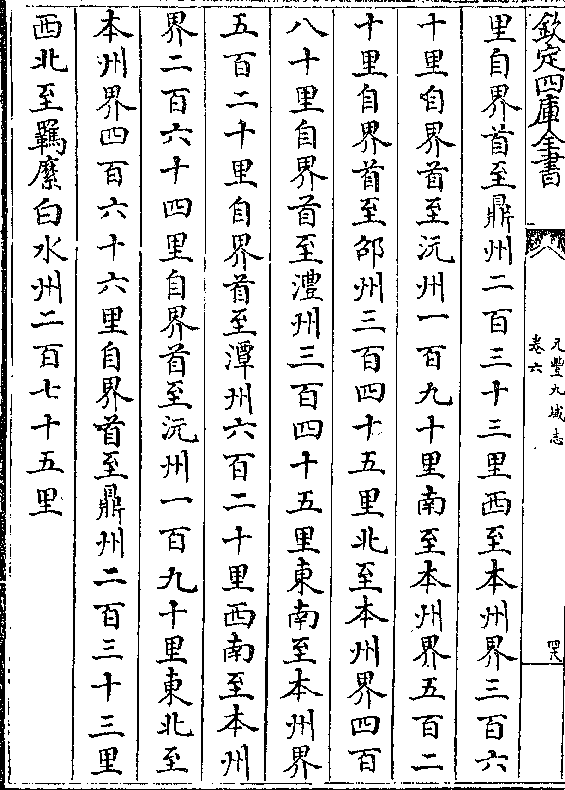 欽定四庫全書
元豐九域志
卷六
里自界首至鼎州二百三十三里西至本州界三百六
十里自界首至沅州一百九十里南至本州界五百二
十里自界首至邵州三百四十五里北至本州界四百
八十里自界首至澧州三百四十五里東南至本州界
五百二十里自界首至潭州六百二十里西南至本州
界二百六十四里自界首至沅州一百九十里東北至
本州界四百六十六里自界首至鼎州二百三十三里
西北至羈縻白水州二百七十五里